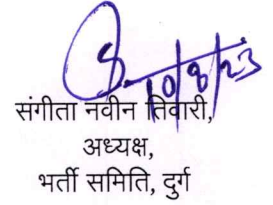 10/8/23
संगीता नवीन तिवारी,
अध्यक्ष,
भर्ती समिति, दुर्ग